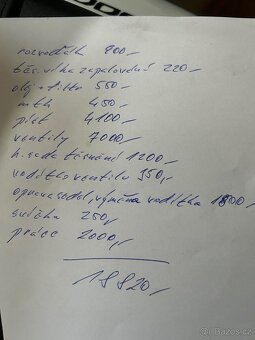 rozvoďák 900,-
těs. víka zapalování 220,-
olej + filtr 550,-
mth 450,-
píst 4100,-
ventily 7000,-
h. sada těsnění 1200,-
vodítko ventilu 350,-
oprava sedel, výměna vodítka 1800,-
svíčka 250,-
práce 2000,-
18820,-